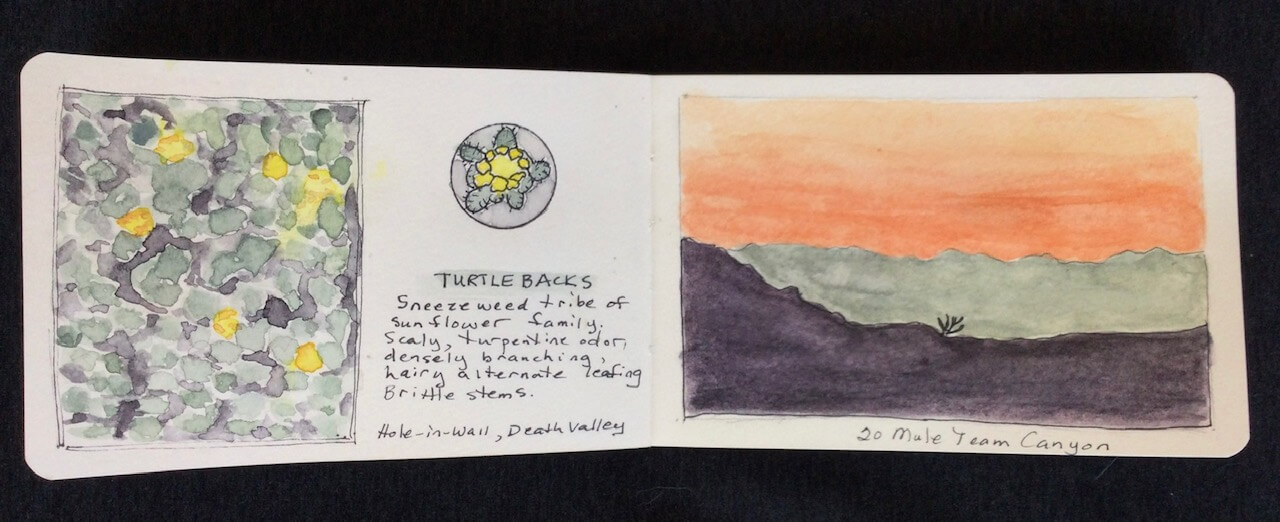 TURTLEBACKS
Sneezeweed tribe of
sunflower family.
Scaly, turpentine odor,
densely branching,
hairy alternate leafing
Brittle stems.
Hole-in-Wall, Death Valley
20 Mule Team Canyon